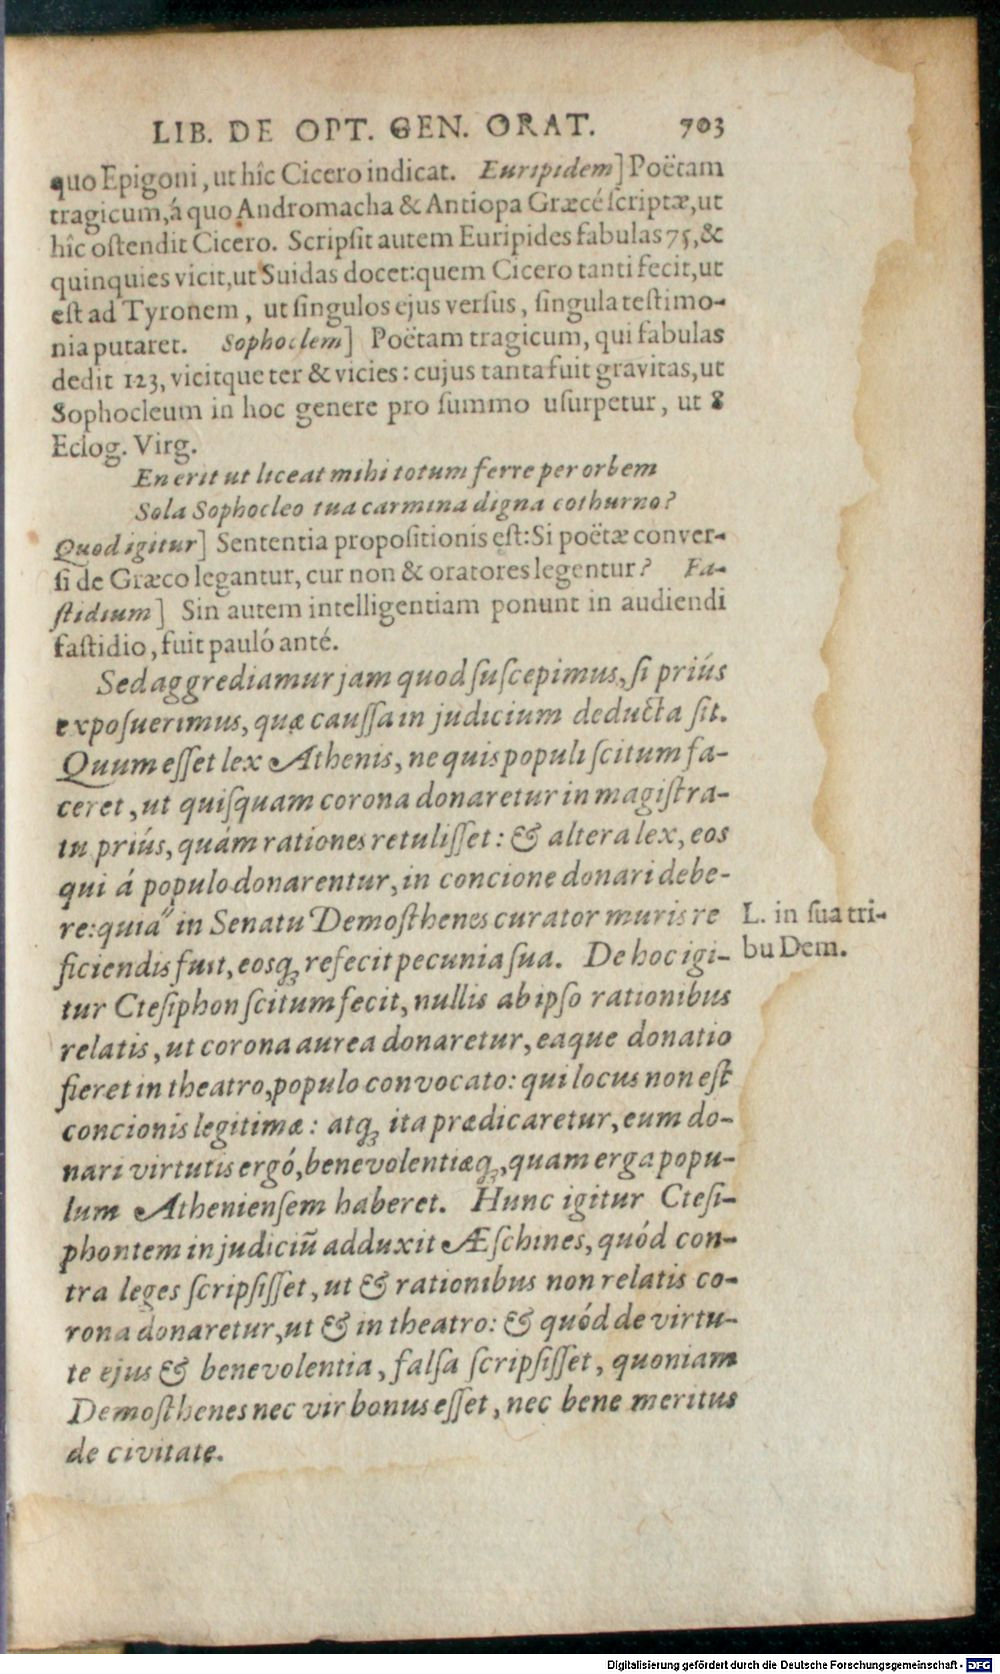 LIB. DE OPT. GEN. ORAT. 703
quo Epigoni, ut hîc Cicero indicat. Euripidem] Poëtam
tragicum, á quo Andromacha & Antiopa Græcé ſcriptæ, ut
hîc oſtendit Cicero. Scripſit autem Euripides fabulas 75, &
quinquies vicit, ut Suidas docet: quem Cicero tanti fecit, ut
eſt ad Tyronem, ut ſingulos ejus verſus, ſingula teſtimo-
nia putaret. Sophoclem] Poëtam tragicum, qui fabulas
dedit 123, vicitque ter & vicies: cujus tanta fuit gravitas, ut
Sophocleum in hoc genere pro ſummo uſurpetur, ut 8
Eclog. Virg.
En erit ut liceat mihi totum ferre per orbem
Sola Sophocleo tua carmina digna cothurno?
Quod igitur] Sententia propoſitionis eſt: Si poëtæ conver-
ſi de Græco legantur, cur non & oratores legentur? Fa-
ſtidium] Sin autem intelligentiam ponunt in audiendi
faſtidio, fuit pauló anté.
Sed aggrediamur jam quod ſuſcepimus, ſi priús
expoſuerimus, quæ cauſſa in judicium deducta ſit.
Quum eſſet lex Athenis, ne quis populi ſcitum fa-
ceret, ut quiſquam corona donaretur in magiſtra-
tu priús, quám rationes retuliſſet: & altera lex, eos
qui á populo donarentur, in concione donari debe-
re: quia" in Senatu Demoſthenes curator muris re
ficiendis fuit, eosq; refecit pecunia ſua. De hoc igi-
tur Cteſiphon ſcitum fecit, nullis ab ipſo rationibus
relatis, ut corona aurea donaretur, eaque donatio
fieret in theatro, populo convocato: qui locus non eſt
concionis legitimæ: atq; ita prædicaretur, eum do-
nari virtutis ergó, benevolentiæq;, quam erga popu-
lum Athenienſem haberet. Hunc igitur Cteſi-
phontem in judiciũ adduxit Æſchines, quód con-
tra leges ſcripſiſſet, ut & rationibus non relatis co-
rona donaretur, ut & in theatro: & quód de virtu-
te ejus & benevolentia, falſa ſcripſiſſet, quoniam
Demoſthenes nec vir bonus eſſet, nec bene meritus
de civitate.
L. in ſua tri-
bu Dem.
Digitalisierung gefördert durch die Deutsche Forschungsgemeinschaft - DFG